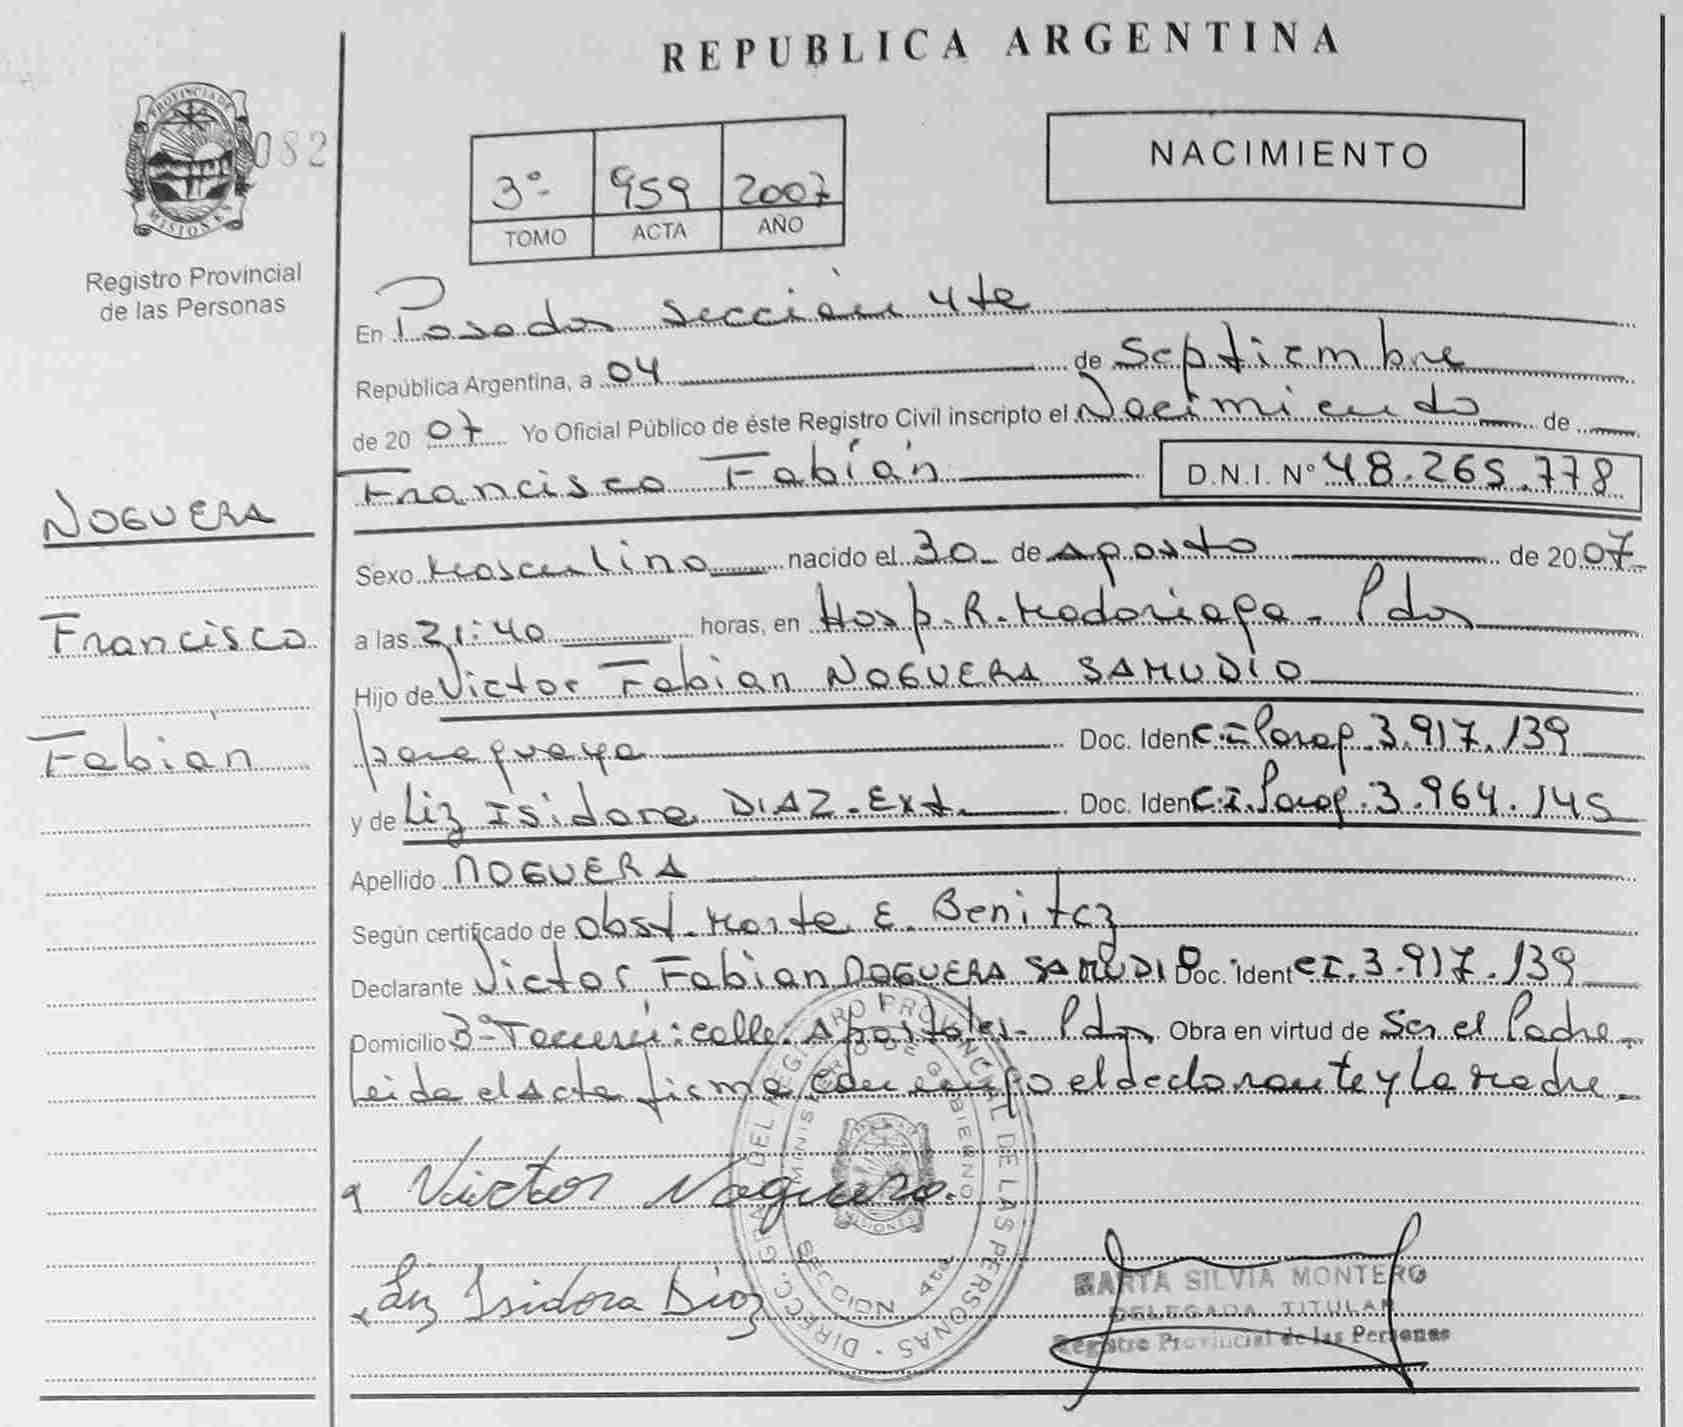 REPUBLICA ARGENTINA
PROVINCIA DE MISIONES
082
Registro Provincial
de las Personas
3º 959 2007
TOMO ACTA AÑO
NACIMIENTO
En Posadas sección 4ta
República Argentina, a 04 de Septiembre
de 2007 Yo Oficial Público de éste Registro Civil inscripto el Nacimiento de
Francisco Fabián D.N.I. Nº 48.265.778
NOGUERA
Francisco
Fabián
Sexo Masculino nacido el 30 de agosto de 2007
a las 21:40 horas, en Hosp. R. Madariaga - Pdas
Hijo de Victor Fabian NOGUERA SAMUDIO
paraguaya Doc. Ident C.I. Parag. 3.917.139
y de Liz Isidora DIAZ. Ext. Doc. Ident C.I. Parag. 3.964.145
Apellido NOGUERA
Según certificado de Obst. Marta E. Benitez
Declarante Victor Fabian NOGUERA SAMUDIO Doc. Ident C.I. 3.917.139
Domicilio calle. Apostoles - Pdas Obra en virtud de Ser el Padre -
Leida el Acta firma conmigo el declarante y La Madre -
Victor Noguera.
Liz Isidora Díaz
DIRECC. GRAL. DEL REGISTRO PROVINCIAL DE LAS PERSONAS
MINISTERIO DE GOBIERNO
MISIONES
SECCION 4ta
MARTA SILVIA MONTERO
DELEGADA TITULAR
Registro Provincial de las Personas